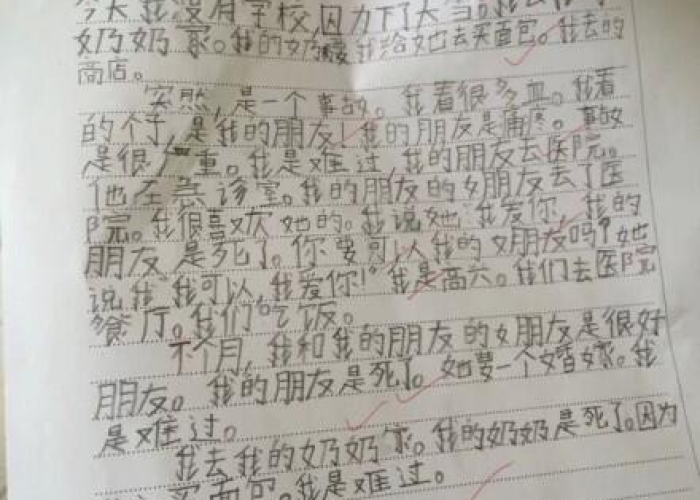 今天我没有学校，因为下了大雪。我去
奶奶家。我的奶奶要我给她去买面包。我去的
商店。
突然，是一个事故。我看很多血。我看
的个子，是我的朋友！我的朋友是痛疼。事故
是很严重。我是难过 我的朋友去医院。
他在急诊室。我的朋友的女朋友去了医
院。我很喜欢她的。我说她“我爱你，我的
朋友是死了。你要可以我的女朋友吗？”她
说我“我可以，我爱你！”我是高兴。我们去医院
餐厅。我们吃饭。
下个月，我和我的朋友的女朋友是很好
朋友。我的朋友是死了。她要一个婚嫁。我
是难过。
我去我的奶奶家。我的奶奶是死了。因为
买面包。我是难过。